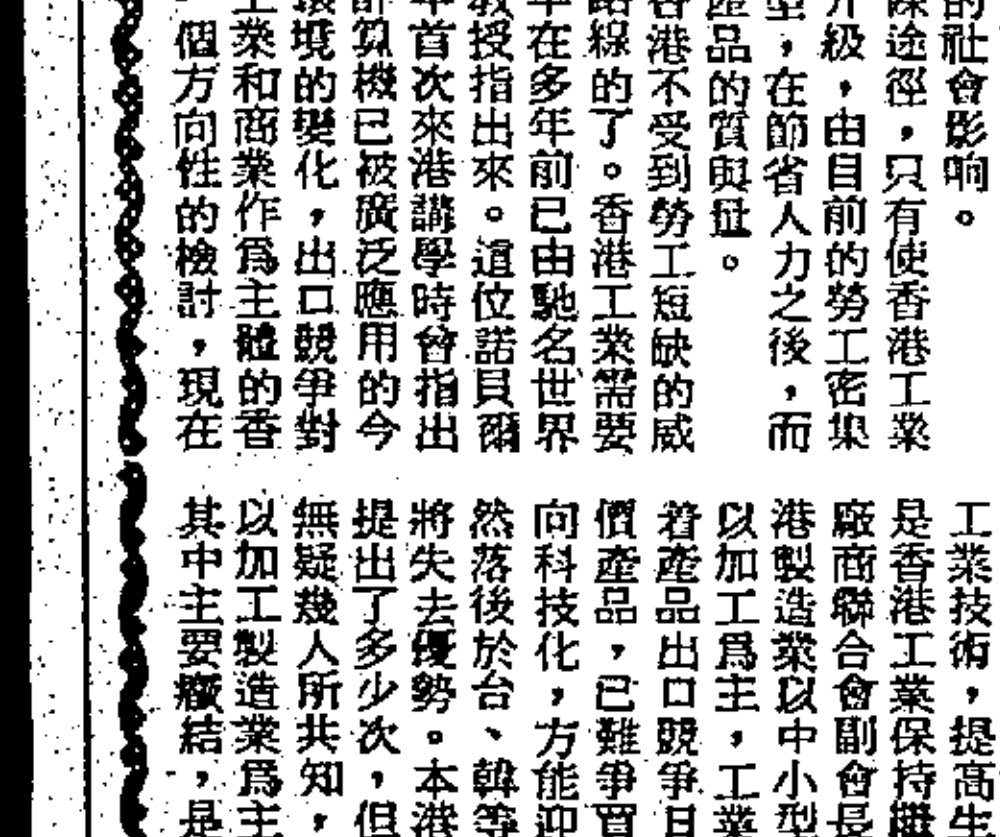 的社會影响。
途徑,只有使香港工業
升級,由目前的勞工密集
型,在節省人力之後,而
產品的質與量。
港不受到勞工短缺的威
路線的了。香港工業需要
在多年前已由馳名世界
教授指出來。這位諾貝爾
年首次來港講學時曾指出
計算機已被廣泛應用的今
環境的變化,出口競爭對
工業和商業作爲主體的香
個方向性的檢討,現在
工業技術,提高生
是香港工業保持
廠商聯合會副會長
港製造業以中小型
以加工爲主,工業
着產品出口競爭日
價產品,已難爭買
向科技化,方能迎
然落後於台、韓等
將失去優勢。本港
提出了多少次,但
無疑幾人所共知,
以加工製造業爲主
其中主要癥結,是